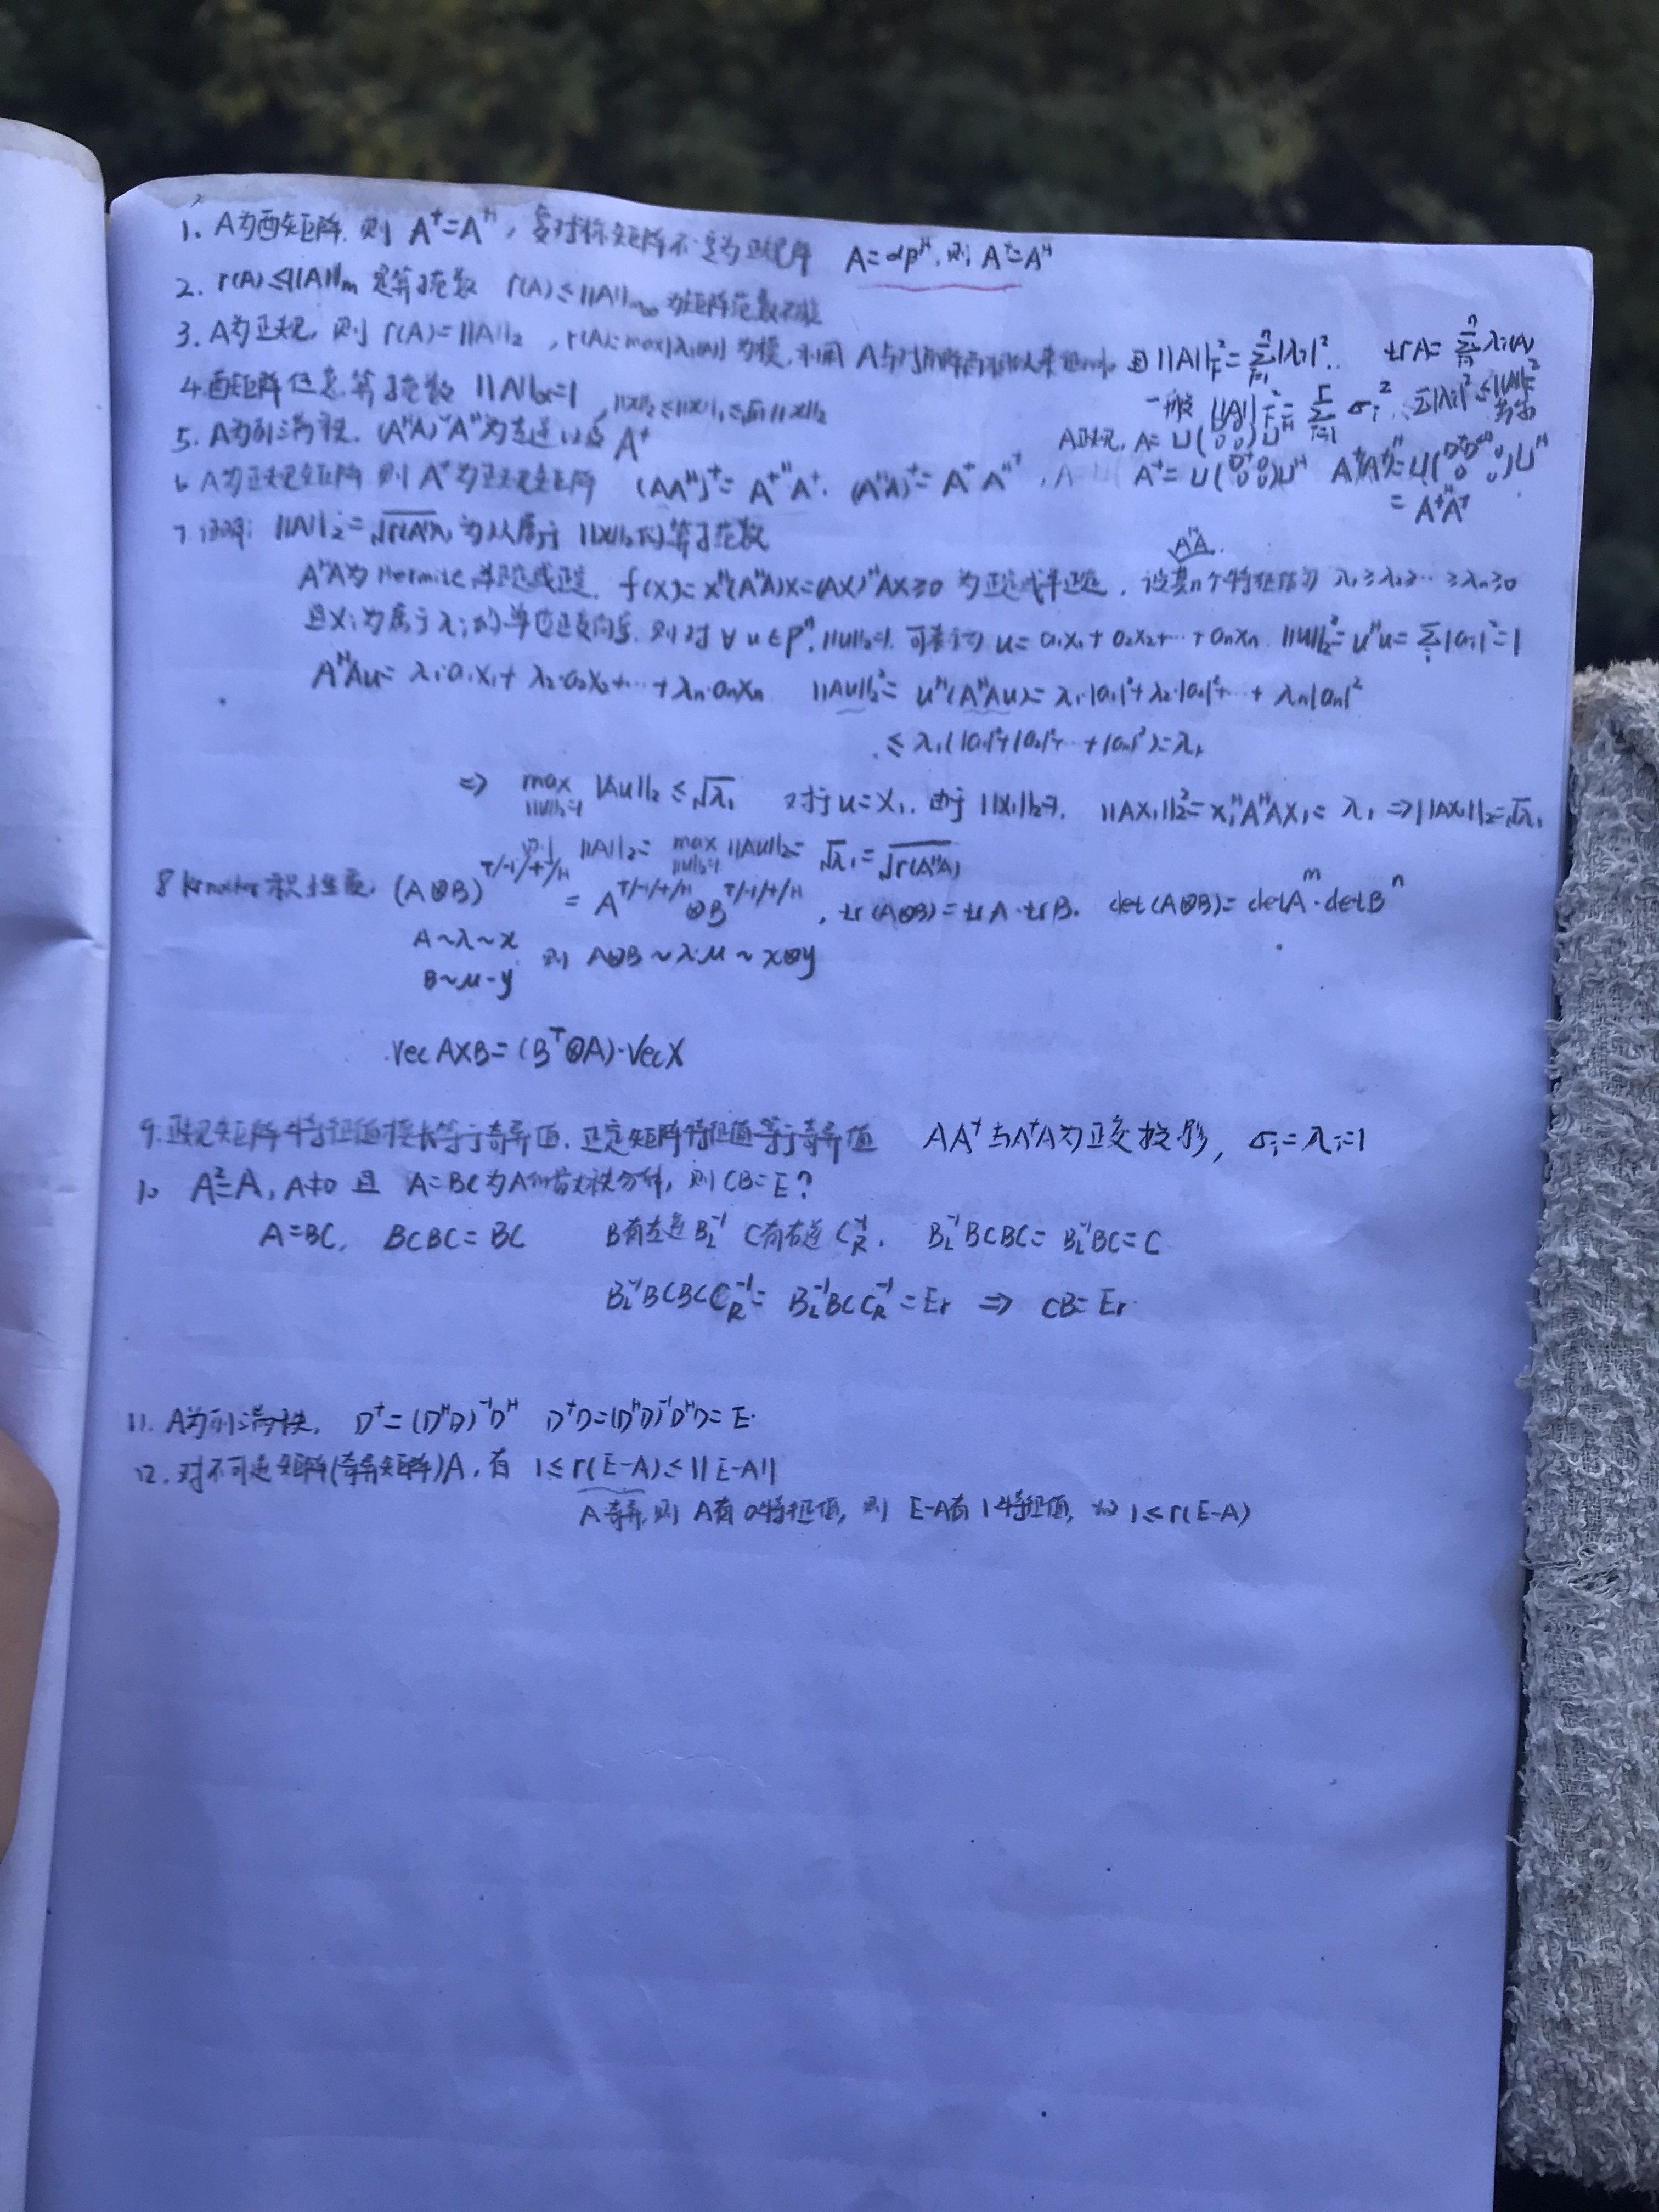 1. A为酉矩阵, 则 A⁺=Aᴴ, 复对称矩阵不一定为正规阵 A=αβᴴ, 则 A⁺=Aᴴ
2. r(A)≤||A||m 是算子范数 r(A)≤||A||m∞ 为矩阵范数
3. A为正规, 则 r(A)=||A||₂, r(A)=max|λi(A)| 为模, 利用 A与对角阵酉相似来 且 ||A||F²=Σ(i=1→n)|λi|². trA=Σ(i=1→n)λi(A)
一般 ||A||F²=Σ(i=1→r)σi², Σ|λi|²≤||A||F²
4. 酉矩阵任意算子范数 ||A||α=1, ||x||₂≤||x||₁≤√n||x||₂
5. A为列满秩, (AᴴA)⁻¹Aᴴ为左逆以及 A⁺
A正规, A=U(D 0; 0 0)Uᴴ
6 A为正规矩阵 则 A⁺为正规矩阵 (AAᴴ)⁺=A⁺ᴴA⁺. (AᴴA)⁺=A⁺Aᴴ⁺, A⁺=U(D⁻¹ 0; 0 0)Uᴴ
=A⁺ᴴA⁺
7 证明: ||A||₂=√r(AᴴA) 为从属于 ||x||₂的算子范数
AᴴA为Hermite半正定或正定. f(x)=xᴴ(AᴴA)x=(Ax)ᴴAx≥0 为正定或半正定, 设其n个特征值为 λ₁≥λ₂≥…≥λn≥0
AᴴA
且xi为属于λi的单位正交向量, 则对 ∀u∈Pⁿ, ||u||₂=1, 可表示为 u=a₁x₁+a₂x₂+…+anxn. ||u||₂²=uᴴu=Σi|ai|²=1
AᴴAu=λ₁·a₁x₁+λ₂·a₂x₂+…+λn·anxn ||Au||₂²=uᴴ(AᴴAu)=λ₁·|a₁|²+λ₂·|a₂|²+…+λn|an|²
≤λ₁(|a₁|²+|a₂|²+…+|an|²)=λ₁
⇒ max(||u||₂=1) ||Au||₂≤√λ₁ 对于u=x₁, 由于||x₁||₂=1, ||Ax₁||₂²=x₁ᴴAᴴAx₁=λ₁ ⇒||Ax₁||₂=√λ₁
则 ||A||₂=max(||u||₂=1) ||Au||₂=√λ₁=√r(AᴴA)
8 Kronecker积性质, (A⊗B)^(T/-1/+/H)=A^(T/-1/+/H)⊗B^(T/-1/+/H), tr(A⊗B)=trA·trB. det(A⊗B)=detAᵐ·detBⁿ
A~λ~x
B~μ~y 则 A⊗B~λ·μ~x⊗y
VecAXB=(Bᵀ⊗A)·VecX
9. 正规矩阵特征值模长等于奇异值, 正定矩阵特征值等于奇异值 AA⁺与A⁺A为正交投影, σi=λi=1
10 A²=A, A≠0 且 A=BC为A的最大秩分解, 则CB=E?
A=BC, BCBC=BC B有左逆B_L⁻¹ C有右逆C_R⁻¹, B_L⁻¹BCBC=B_L⁻¹BC=C
B_L⁻¹BCBCC_R⁻¹=B_L⁻¹BCC_R⁻¹=Er ⇒ CB=Er
11. A为列满秩, D⁺=(DᴴD)⁻¹Dᴴ D⁺D=(DᴴD)⁻¹DᴴD=E
12. 对不可逆矩阵(奇异矩阵)A, 有 1≤r(E-A)≤||E-A||
A奇异, 则 A有0特征值, 则 E-A有1特征值, 故 1≤r(E-A)